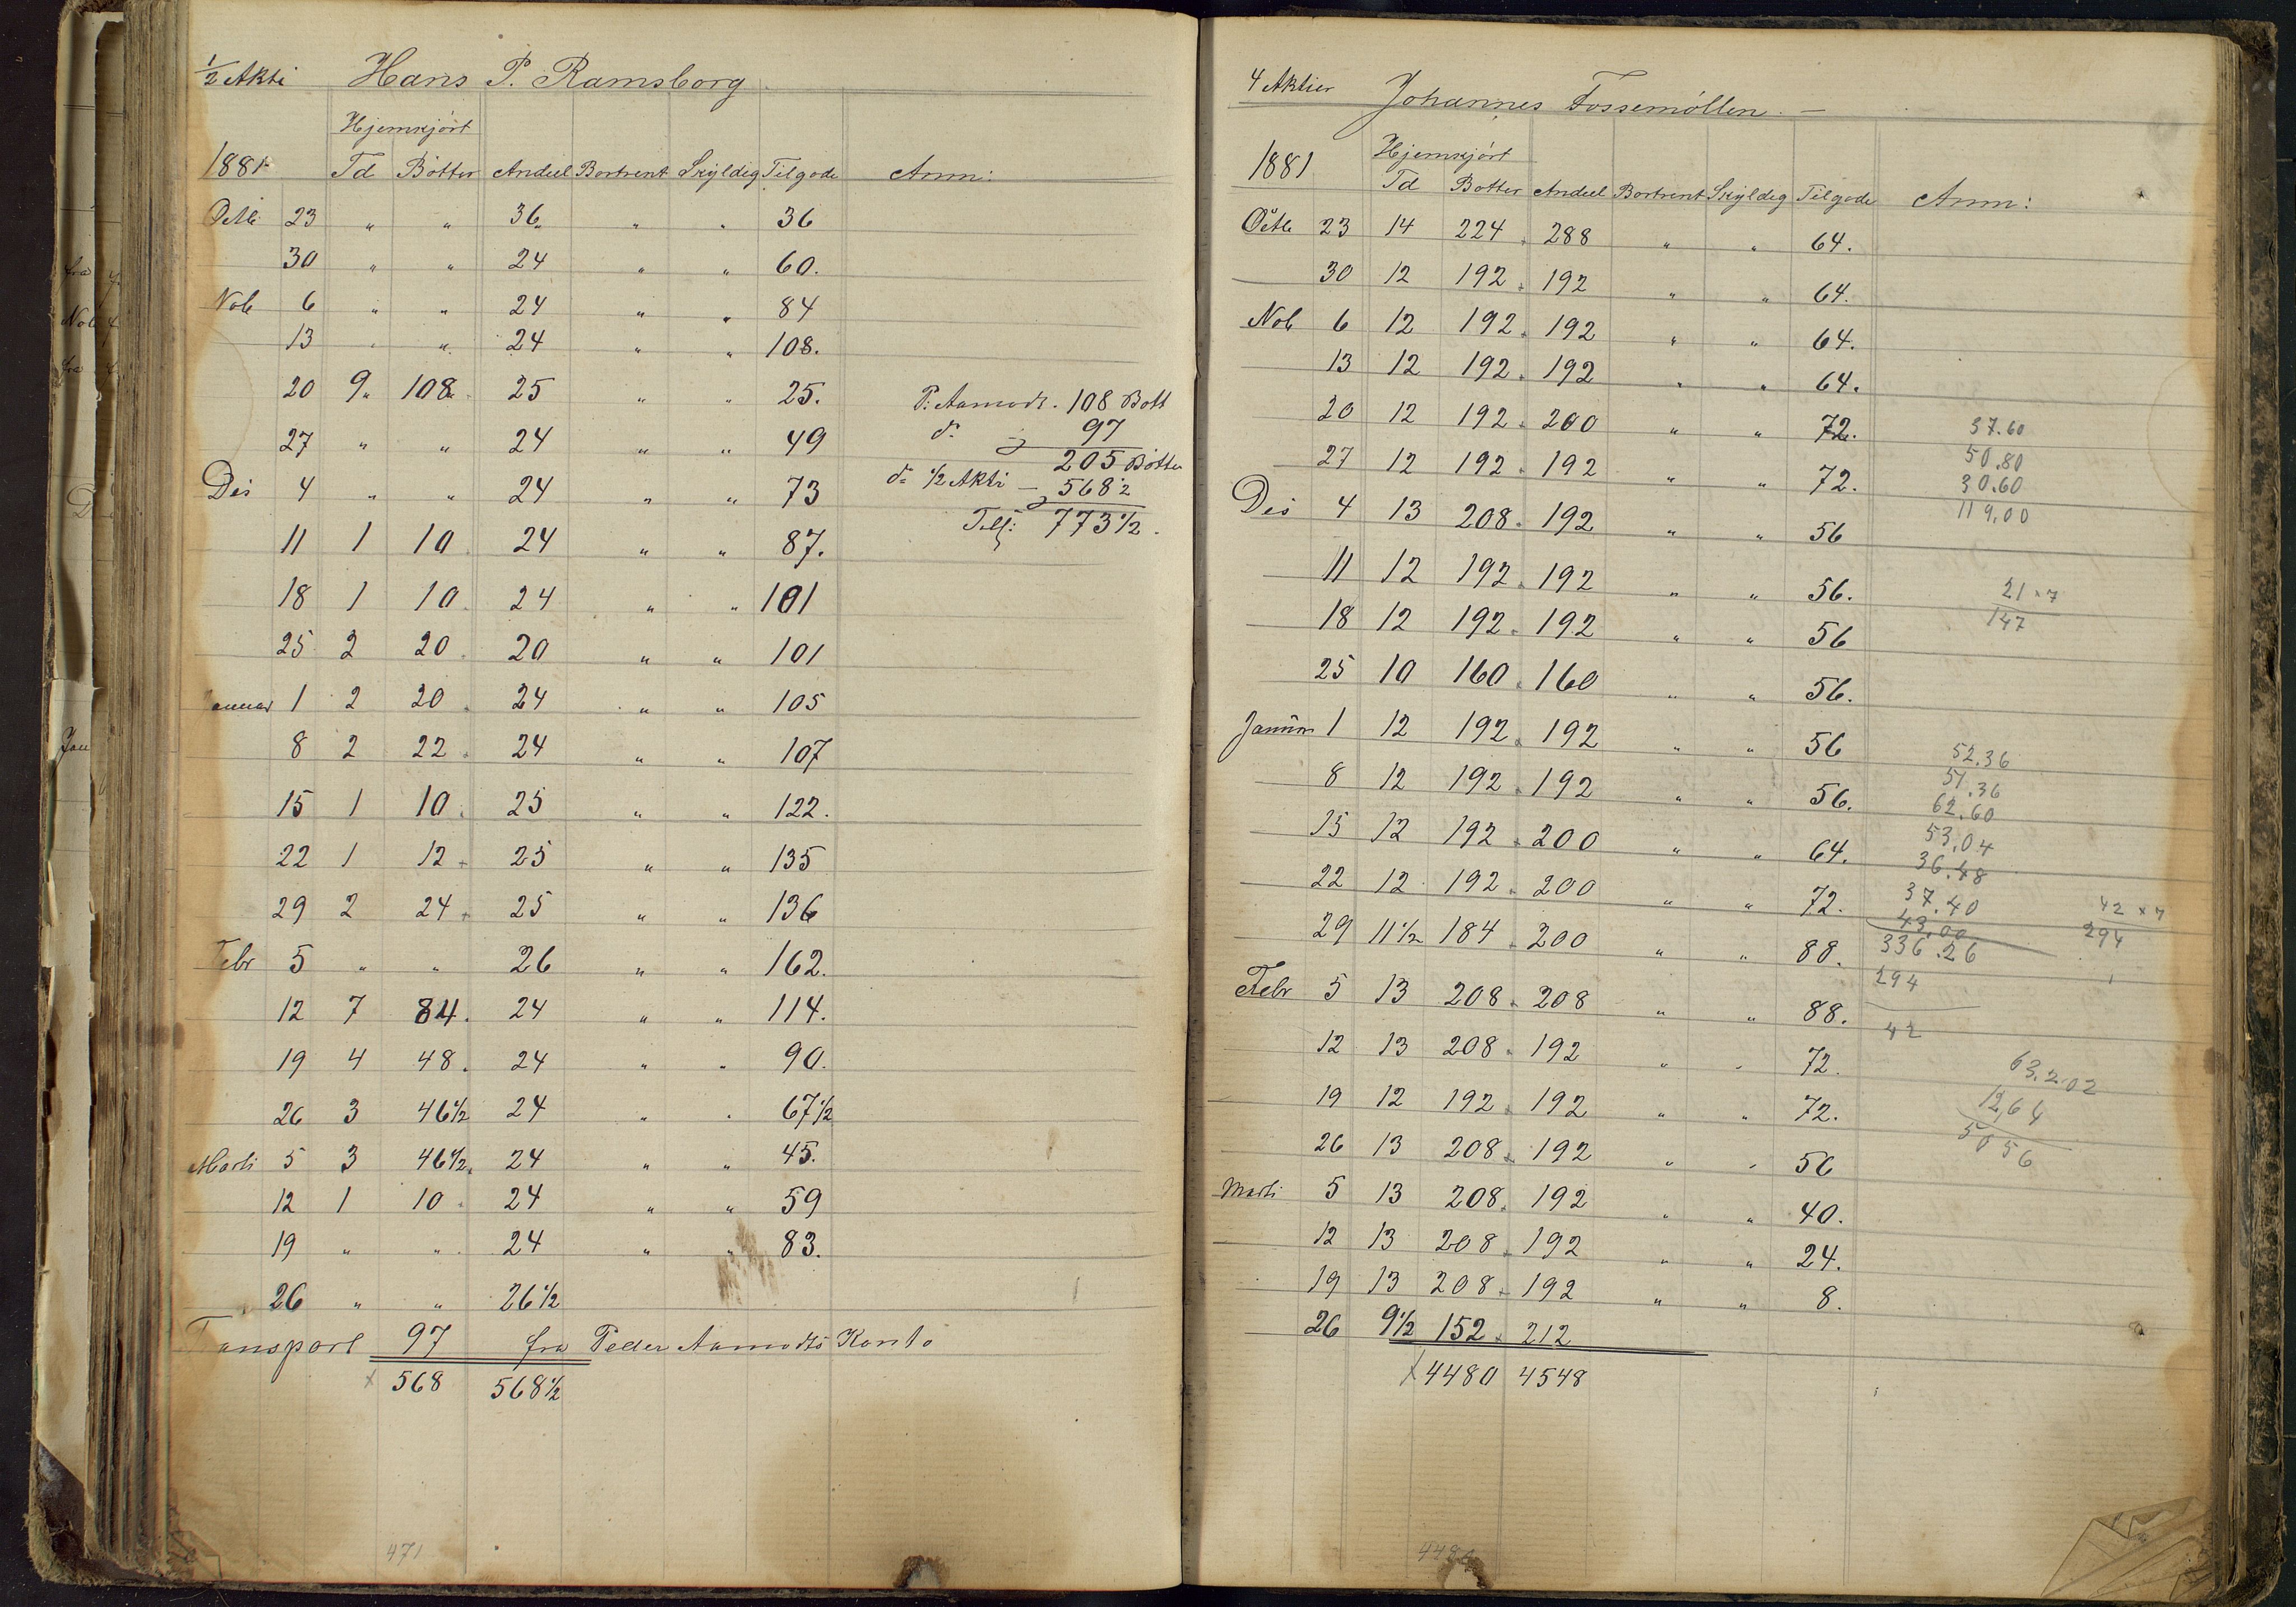 1/2 Akti Hans P. Ramsborg
Hjemkjört
1881 Td Bötter Andeel Bortrent Skyldig Tilgode Anm:
Octb 23 " " 36 " " 36
30 " " 24 " " 60.
Nob 6 " " 24 " " 84
13 " " 24 " " 108.
20 9 108 25 " " 25. P. Aamodt. 108 Bött
27 " " 24 " " 49 do 97
205 Bötter
Des 4 " " 24 " " 73 do 1/2 Akti – 568 1/2
11 1 10 24 " " 87. Tils: 773 1/2.
18 1 10 24 " " 101
25 2 20 20 " " 101
anuar 1 2 20 24 " " 105
8 2 22 24 " " 107
15 1 10 25 " " 122.
22 1 12 25 " " 135
29 2 24 25 " " 136
Febr 5 " " 26 " " 162.
12 7 84. 24 " " 114.
19 4 48. 24 " " 90.
26 3 46 1/2 24 " " 67 1/2
Marti 5 3 46 1/2 24 " " 45.
12 1 10 24 " " 59
19 " " 24 " " 83.
26 " " 26 1/2
Transport 97 fra Peder Aamodts Konto
x 568 568 1/2
471
4 Aktier Johannes Fossemöllen. –
Hjemkjört
1881 Td Botter Andeel Bortrent Skyldig Tilgode Anm:
Octb 23 14 224 288 " " 64.
30 12 192 192 " " 64.
Nob 6 12 192 192 " " 64.
13 12 192 192 " " 64.
20 12 192 200 " " 72. 37.60
27 12 192 192 " " 72. 50.80
30.60
Des 4 13 208 192 " " 56 119.00
11 12 192 192 " " 56. 21 x 7
18 12 192 192 " " 56 147
25 10 160 160 " " 56.
Januar 1 12 192 192 " " 56 52.36
8 12 192 192 " " 56. 51.36
62.60
15 12 192 200 " " 64. 53.04
36.48
22 12 192 200 " " 72. 37.40 42 x 7
43.00 294
29 11 1/2 184 200 " " 88. 336.26
294
Febr 5 13 208 208 " " 88. 42
12 13 208 192 " " 72. 63.202
19 12 192 192 " " 72. 12,64
26 13 208 192 " " 56 5056
Marti 5 13 208 192 " " 40.
12 13 208 192 " " 24.
19 13 208 192 " " 8.
26 9 1/2 152 212
x 4480 4548